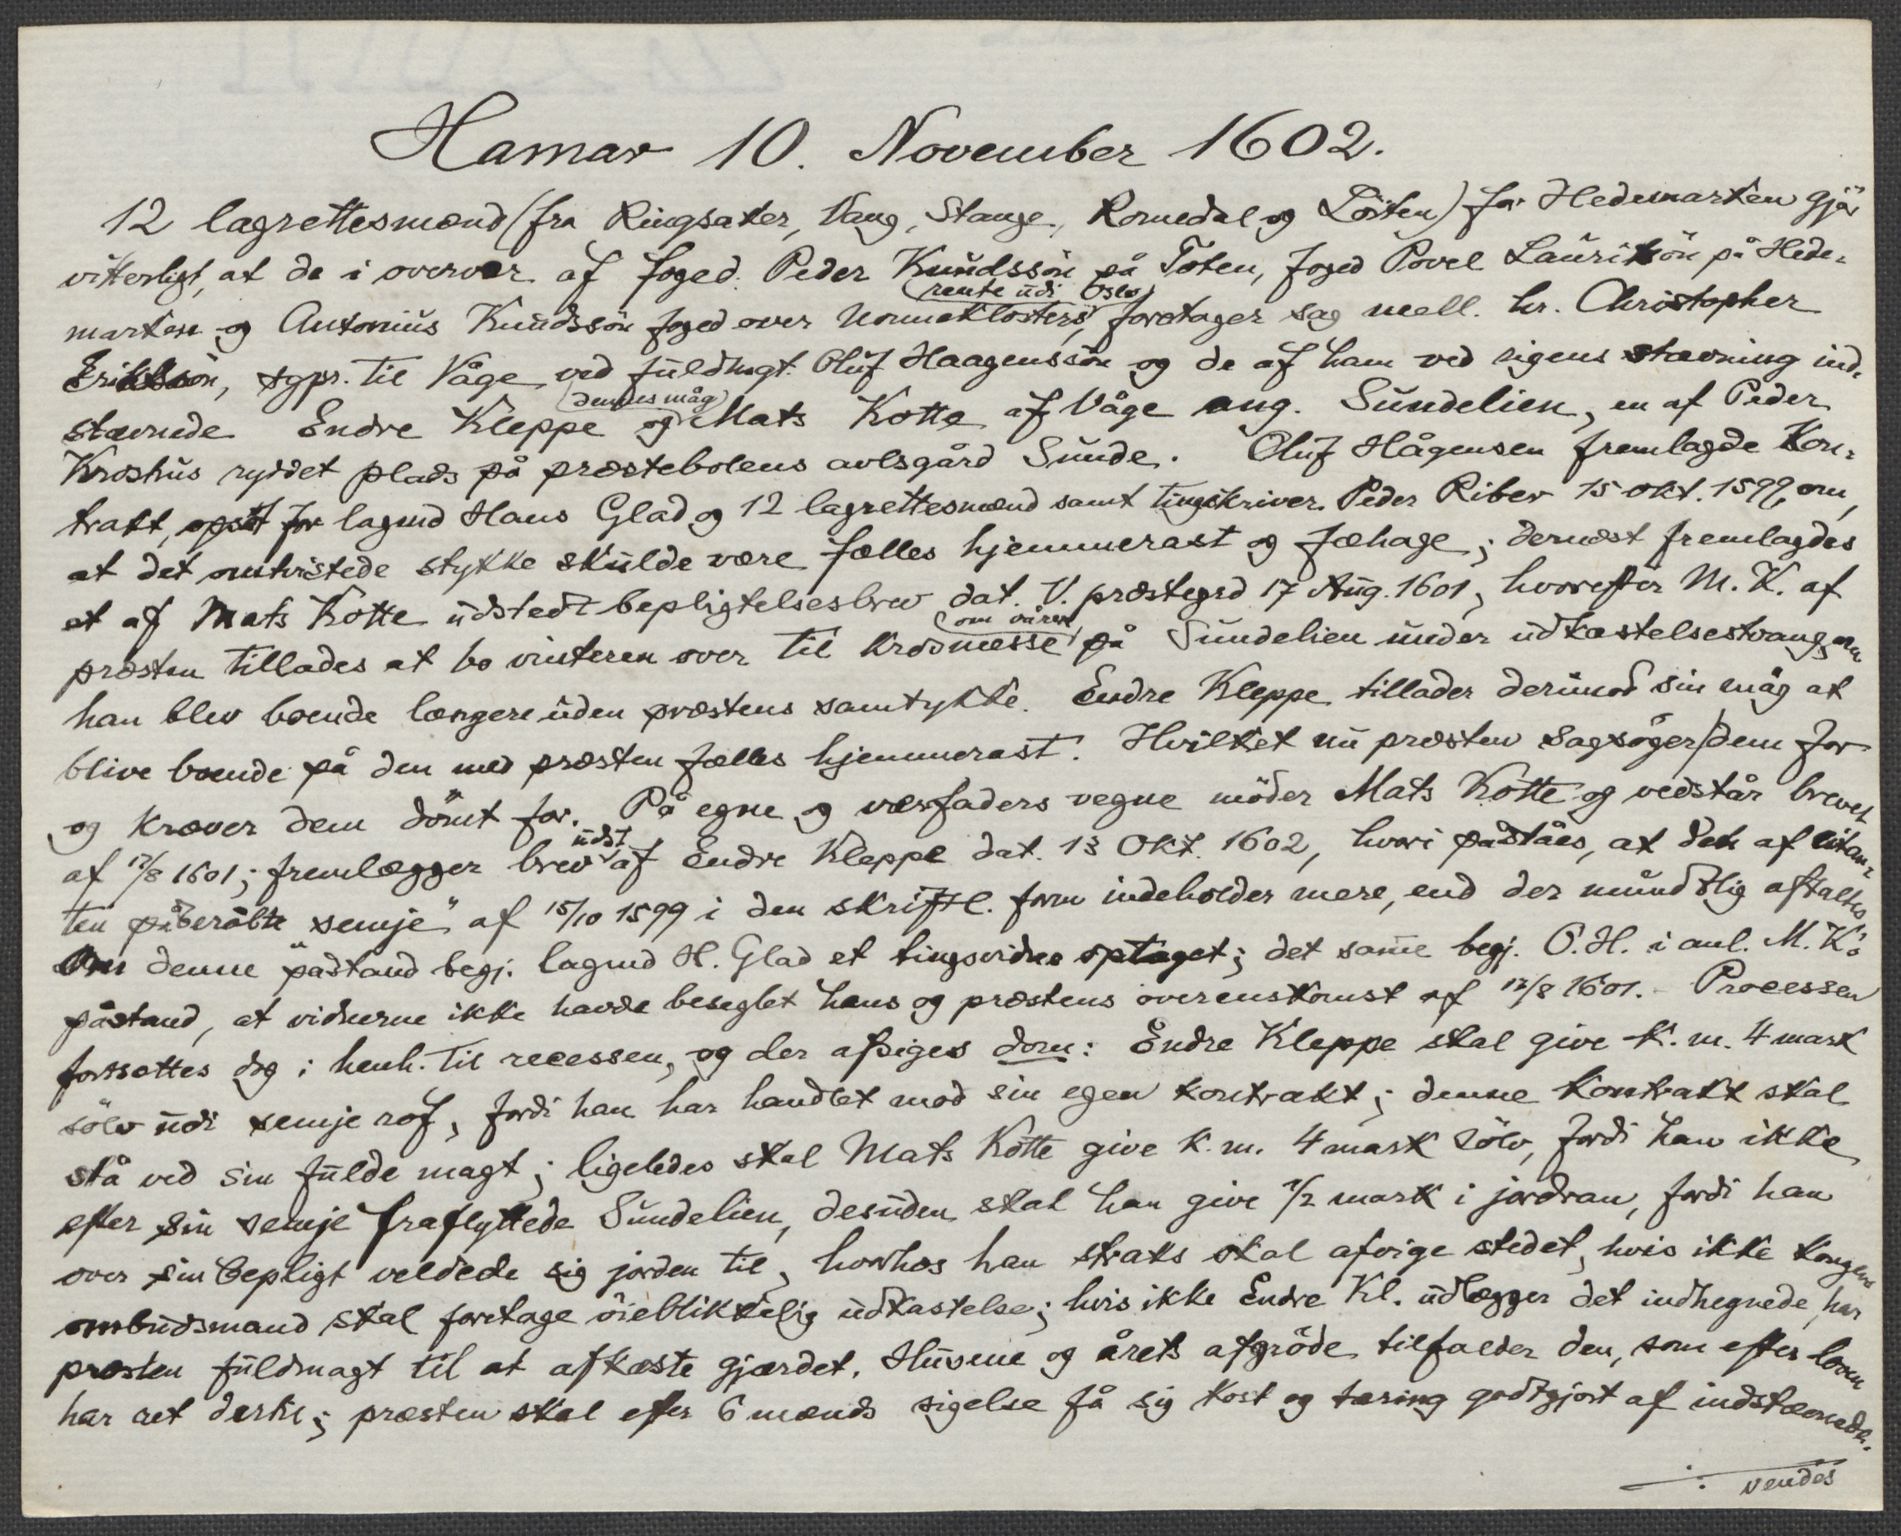 Hamar 10. November 1602.
12 lagrettesmænd (fra Ringsaker, Vang, Stange, Romedal og Löiten) for Hedemarken gjör
vitterligt, at de i overvær af foged Peder Knudssön på Toten, foged Povel Lauritsön på Hede-
marken og Antonius Knudssön foged over Nonneklosters (rente udi Oslo) foretager sag mell. hr. Christopher
Erikssön, sgpr. til Våge ved fuldmgt. Oluf Haagenssön og de af ham ved rigens stævning ind-
stævnede Endre Kleppe og (dennes måg) Mats Kotte af Våge ang. Sundelien, en af Peder
Kroshus ryddet plads på præstebolens avlsgård Sunde. Oluf Hågensen fremlagde Kon-
trakt, opsat for lagmd Hans Glad og 12 lagrettesmænd samt tingskriver Peder Riber 15 okt. 1599, om,
at det omtvistede stykke skulde være fælles hjemmerast og fæhage; dernæst fremlagdes
et af Mats Kotte udstedt bepligtelsesbrev dat. V. præstegrd 17 Aug. 1601, hvorefter M. K. af
præsten tillades at bo vinteren over til krosmesse (om våren) på Sundelien under udkastelsestvang, om
han blev boende længere uden præstens samtykke. Endre Kleppe tillader derimod sin måg at
blive boende på den med præsten fælles hjemmerast. Hvilket nu præsten sagsöger dem for
og kræver dem dömt for. På egne og værfaders vegne möder Mats Kotte og vedstår brevet
af 17/8 1601; fremlægger brev udst. af Endre Kleppe dat. 13 Okt. 1602, hvori påståes, at den af citan-
ten påberåbte "semje" af 15/10 1599 i den skriftl. form indeholder mere, end der mundtlig aftaltes.
Om denne påstand begj. lagmd H. Glad et tingsvidne optaget; det samme begj. O. H. i anl. M. K's
påstand, at vidnerne ikke havde beseglet hans og præstens overenskomst af 17/8 1601. - Processen
fortsættes dog i henh. til recessen, og der afsiges dom: Endre Kleppe skal give k. m. 4 mark
sölv udi semje rof, fordi han har handlet mod sin egen kontrakt; denne kontrakt skal
stå ved sin fulde magt; ligeledes skal Mats Kotte give k. m. 4 mark sölv, fordi han ikke
efter sin semje fraflyttede Sundelien, desuden skal han give 1/2 mark i jordran, fordi han
over sin bepligt veldede sig jorden til, hvorhos han straks skal afvige stedet, hvis ikke kongens
ombudsmand skal foretage öieblikkelig udkastelse; hvis ikke Endre Kl. udlægger det indhegnede, har
præsten fuldmagt til at afkaste gjærdet. Husene og årets afgröde tilfalder den, som efter loven
har ret dertil; præsten skal efter 6 mænds sigelse få sig kost og tæring godtgjort af indstævnede.
vendes